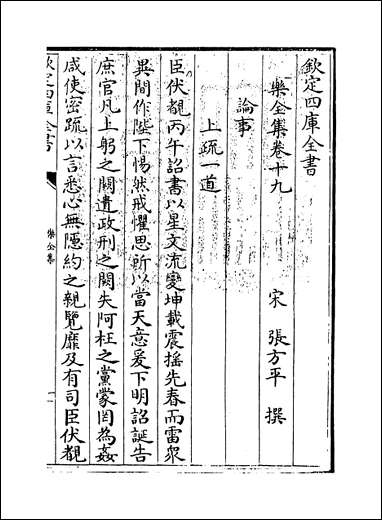 欽定四庫全書
樂全集卷十九
宋 張方平 撰
論事
上疏一道
臣伏覩丙午詔書以星文流變坤載震搖先春而雷衆
異間作陛下惕然戒懼思所以當天意爰下明詔誕告
庶官凡上躬之闕遺政刑之闕失阿枉之黨蒙罔為姦
咸使密疏以言悉心無隱約之親覽靡及有司臣伏覩
欽定四庫全書
樂全集
一